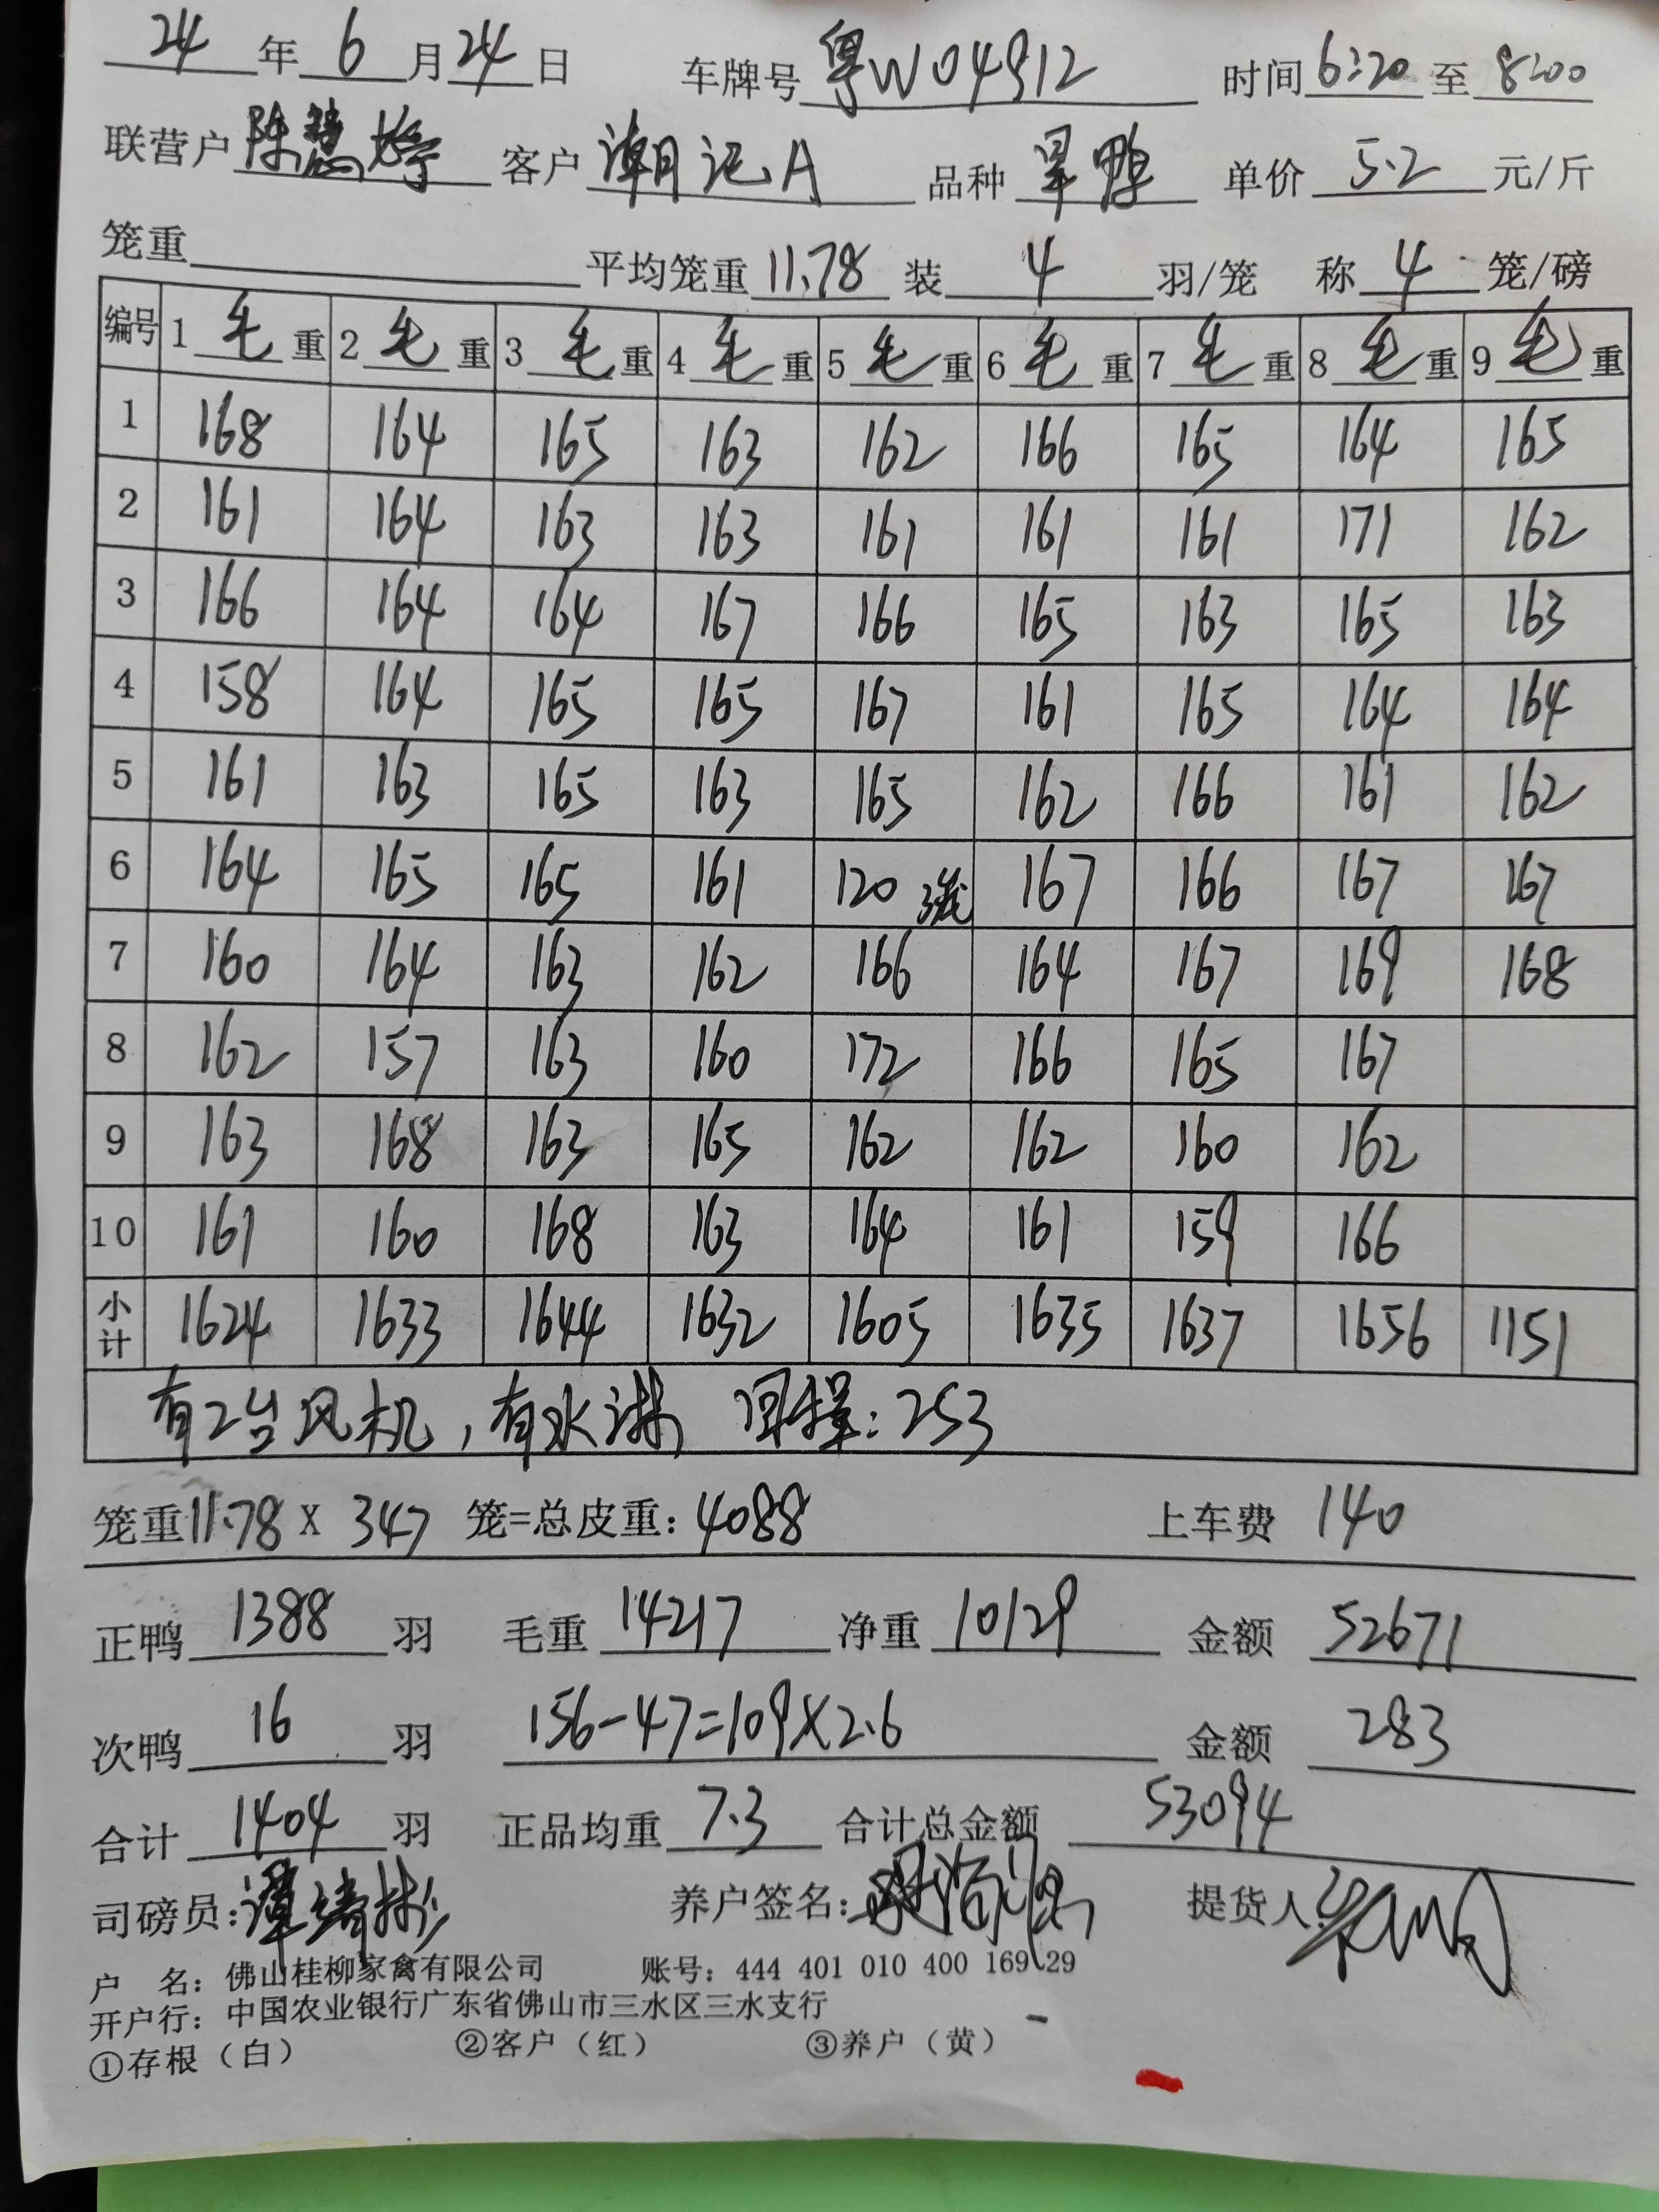 24年6月24日 车牌号粤W04912 时间6:20至8:00
联营户陈慧婷 客户潮记A 品种旱鸭 单价5.2元/斤
笼重 平均笼重11.78 装4羽/笼 称4笼/磅
编号 1毛重 2毛重 3毛重 4毛重 5毛重 6毛重 7毛重 8毛重 9毛重
1 168 164 165 163 162 166 165 164 165
2 161 164 163 163 161 161 161 171 162
3 166 164 164 167 166 165 163 165 163
4 158 164 165 165 167 161 165 164 164
5 161 163 165 163 165 162 166 161 162
6 164 165 165 161 120 3笼 167 166 167 167
7 160 164 163 162 166 164 167 169 168
8 162 157 163 160 172 166 165 167
9 163 168 163 165 162 162 160 162
10 161 160 168 163 164 161 159 166
小计 1624 1633 1644 1632 1605 1635 1637 1656 1151
有2台风机,有水淋 回择:253
笼重11.78X 347 笼=总皮重:4088 上车费 140
正鸭1388羽 毛重14217 净重10129 金额52671
次鸭16羽 156-47=109X2.6 金额283
合计1404羽 正品均重7.3 合计总金额53094
司磅员: 养户签名: 提货人:
户 名:佛山桂柳家禽有限公司 账号:444 401 010 400 169 29
开户行:中国农业银行广东省佛山市三水区三水支行
①存根(白) ②客户(红) ③养户(黄)